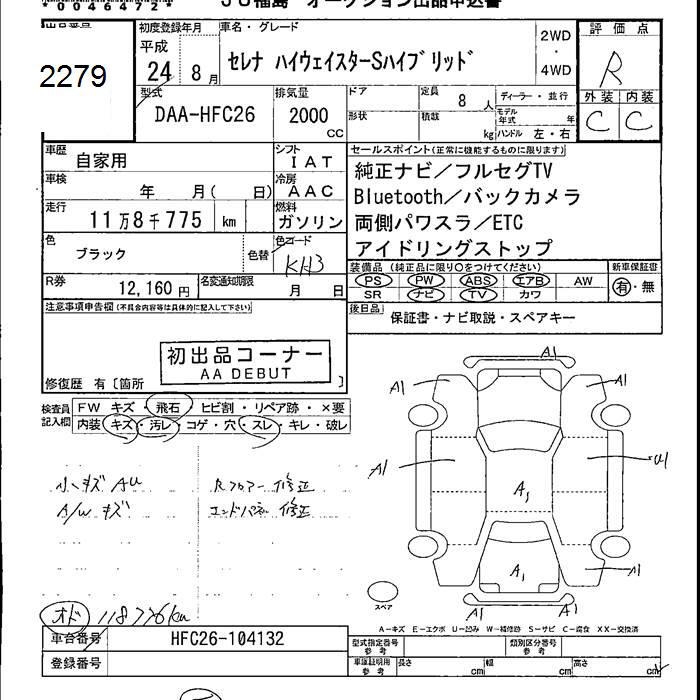 *0040472*
JU福島 オークション出品申込書
出品番号
2279
初度登録年月
平成
24年 8月
車名・グレード
セレナ ハイウェイスターSハイブリッド
2WD
・
4WD
評価点
R
外装 内装
C C
型式
DAA-HFC26
排気量
2000
CC
ドア
形状
定員
8人
積載
kg
ディーラー・並行
モデル年式 年
ハンドル 左・右
車歴
自家用
シフト
IAT
車検
年 月( 日)
冷房
AAC
走行
11万8千775 km
燃料
ガソリン
色
ブラック
色替
色コード
KH3
R券
12,160円
名変通知期限
月 日
セールスポイント(正常に機能するものに限ります)
純正ナビ/フルセグTV
Bluetooth/バックカメラ
両側パワスラ/ETC
アイドリングストップ
装備品(純正品に限り○をつけてください)
PS PW ABS エアB AW
SR ナビ TV カワ
新車保証書
有・無
後日品
保証書・ナビ取説・スペアキー
注意事項申告欄(不具合内容等は具体的に記入して下さい)
初出品コーナー
AA DEBUT
修復歴 有〔箇所 〕
検査員記入欄
FW キズ・飛石・ヒビ割・リペア跡・×要
内装 キズ・汚レ・コゲ・穴・スレ・キレ・破レ
小キズ AU
A/W キズ
Rフロアー修正
エンドパネル修正
オド 118776km
A1
A1
A1
A1
A1
U1
A1
A1
A1
A1
スペア
A-キズ E-エクボ U-凹み W-補修跡 S-サビ C-腐食 XX-交換済
車台番号
HFC26-104132
登録番号
型式指定番号
参考
類別区分番号
参考
車庫証明用
参考
長さ cm
幅 cm
高さ cm